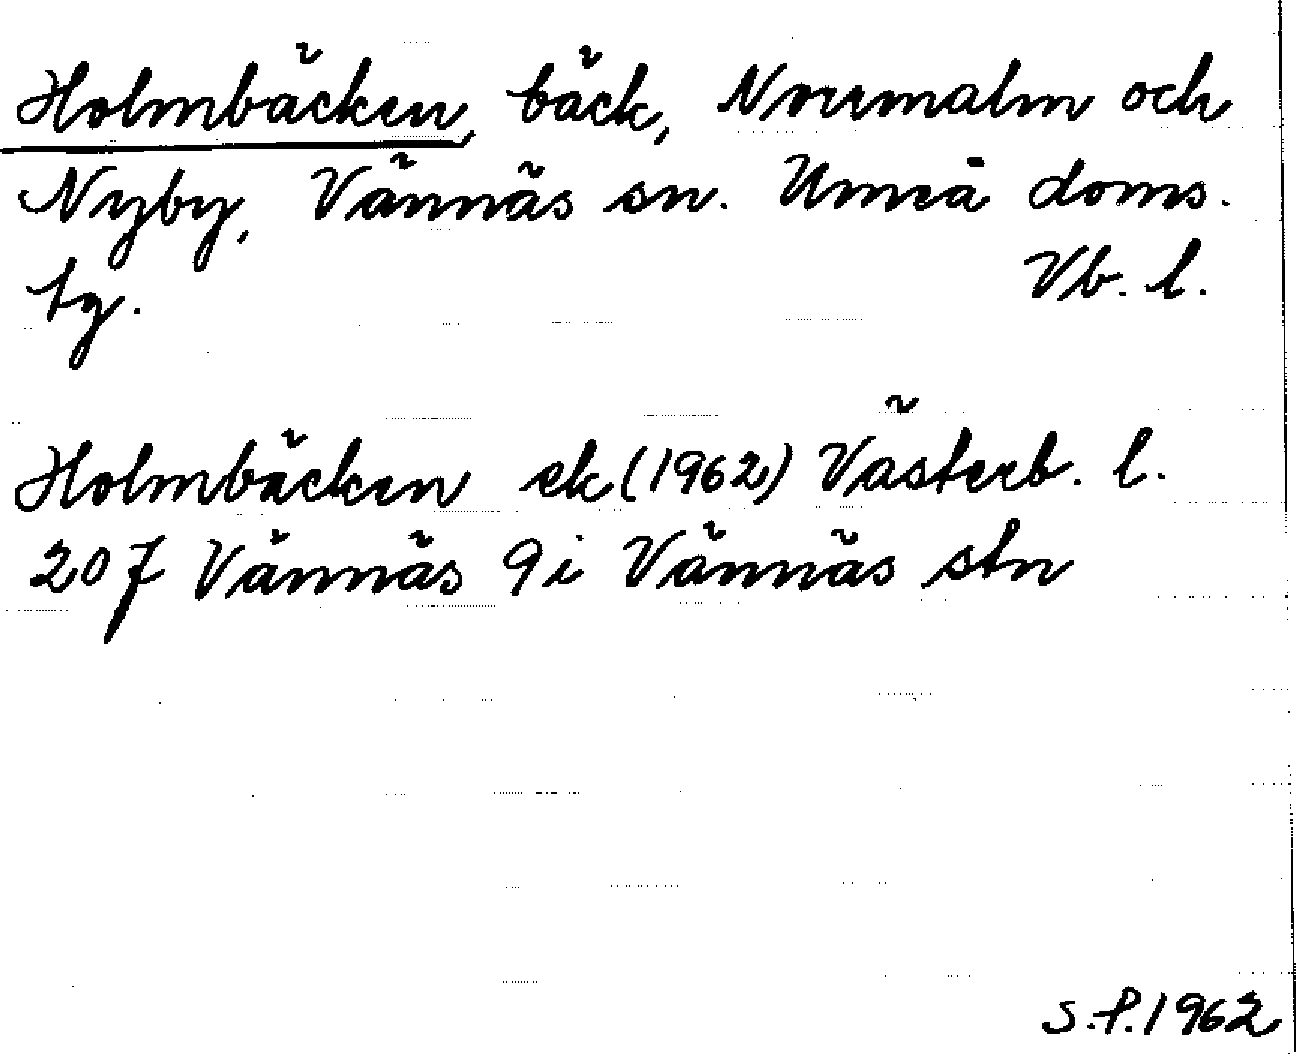 Holmbäcken, bäck, Norrmalm och
Nyby, Vännäs sn. Umeå doms.
tg. Vb. l.
Holmbäcken ek (1962) Västerb. l.
20 J Vännäs 9i Vännäs stn
S.P. 1962